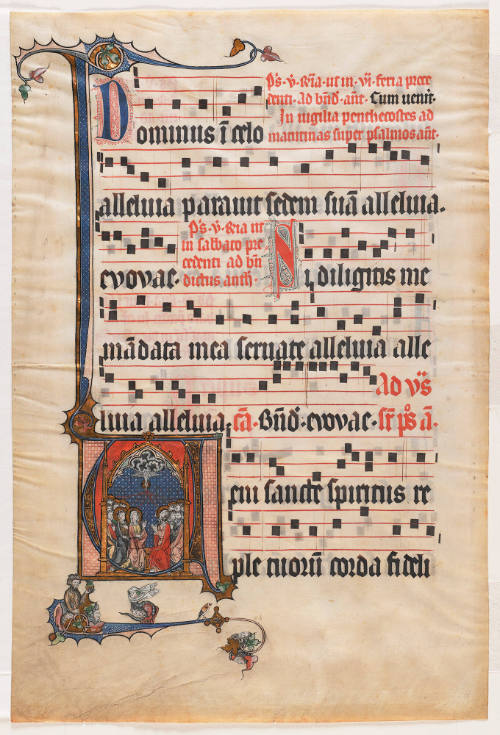 Ps. v. feria ut in vi. feria prece
denti. ad bnd. ant. Cum venit.
In vigilia penthecostes ad
matutinas super psalmos ant.
Dominus ī celo
alleluia paravit sedem suā alleluia.
Ps. v. feria ut
in sabbato pre
cedenti ad bn
dictus anth.
evovae. Si diligitis me
mādata mea servate alleluia alle
Ad vs
luia alleluia. Bnd. evovae.
Veni sancte spiritus re
ple tuorū corda fideli